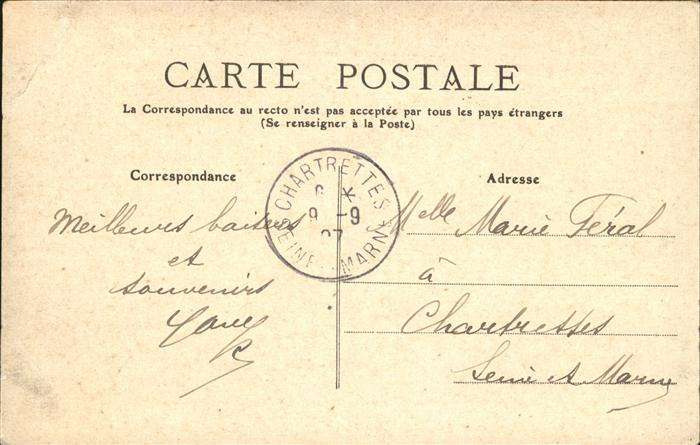 CARTE POSTALE
La Correspondance au recto n'est pas acceptée par tous les pays étrangers
(Se renseigner à la Poste)
Correspondance
Adresse
CHARTRETTES
9 - 9
07
SEINE-ET-MARNE
Meilleurs baisers
et
souvenirs
Melle Marie Féral
à
Chartrettes
Seine et Marne